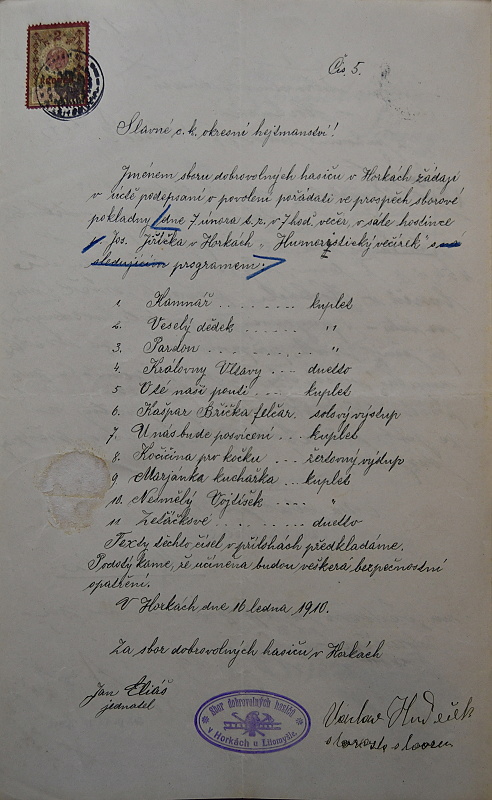 Čís. 5.
Slavné c. k. okresní hejtmanství!
Jménem sboru dobrovolných hasičů v Horkách žádají
v úctě podepsaní o povolení pořádati ve prospěch sborové
pokladny dne 7 února t. r. v 7 hod večer, v sále hostince
Jos. Jiříčka v Horkách „Humoristický večírek" s
sledujícím programem:
1. Kamnář ........ kuplet
2. Veselý dědek ...... "
3. Pardon ........ "
4. Královny Vltavy .... duetto
5 V té naší pouti .... kuplet
6. Kašpar Břička felčar. solový výstup
7. U nás bude posvícení ... kuplet
8. Kočičina pro kočku ... žertovný výstup
9 Marjánka kuchařka ... kuplet
10. Nesmělý Vojtíšek ..... "
11. Zeláčkové ....... duetto
Texty těchto čísel v přílohách předkládáme.
Podotýkáme, že učiněna budou veškerá bezpečnostní
opatření.
V Horkách dne 16 ledna 1910.
Za sbor dobrovolných hasičů v Horkách
Jan Eliáš
jednatel
Sbor dobrovolných hasičů
v Horkách u Litomyšle
Václav
starosta sboru